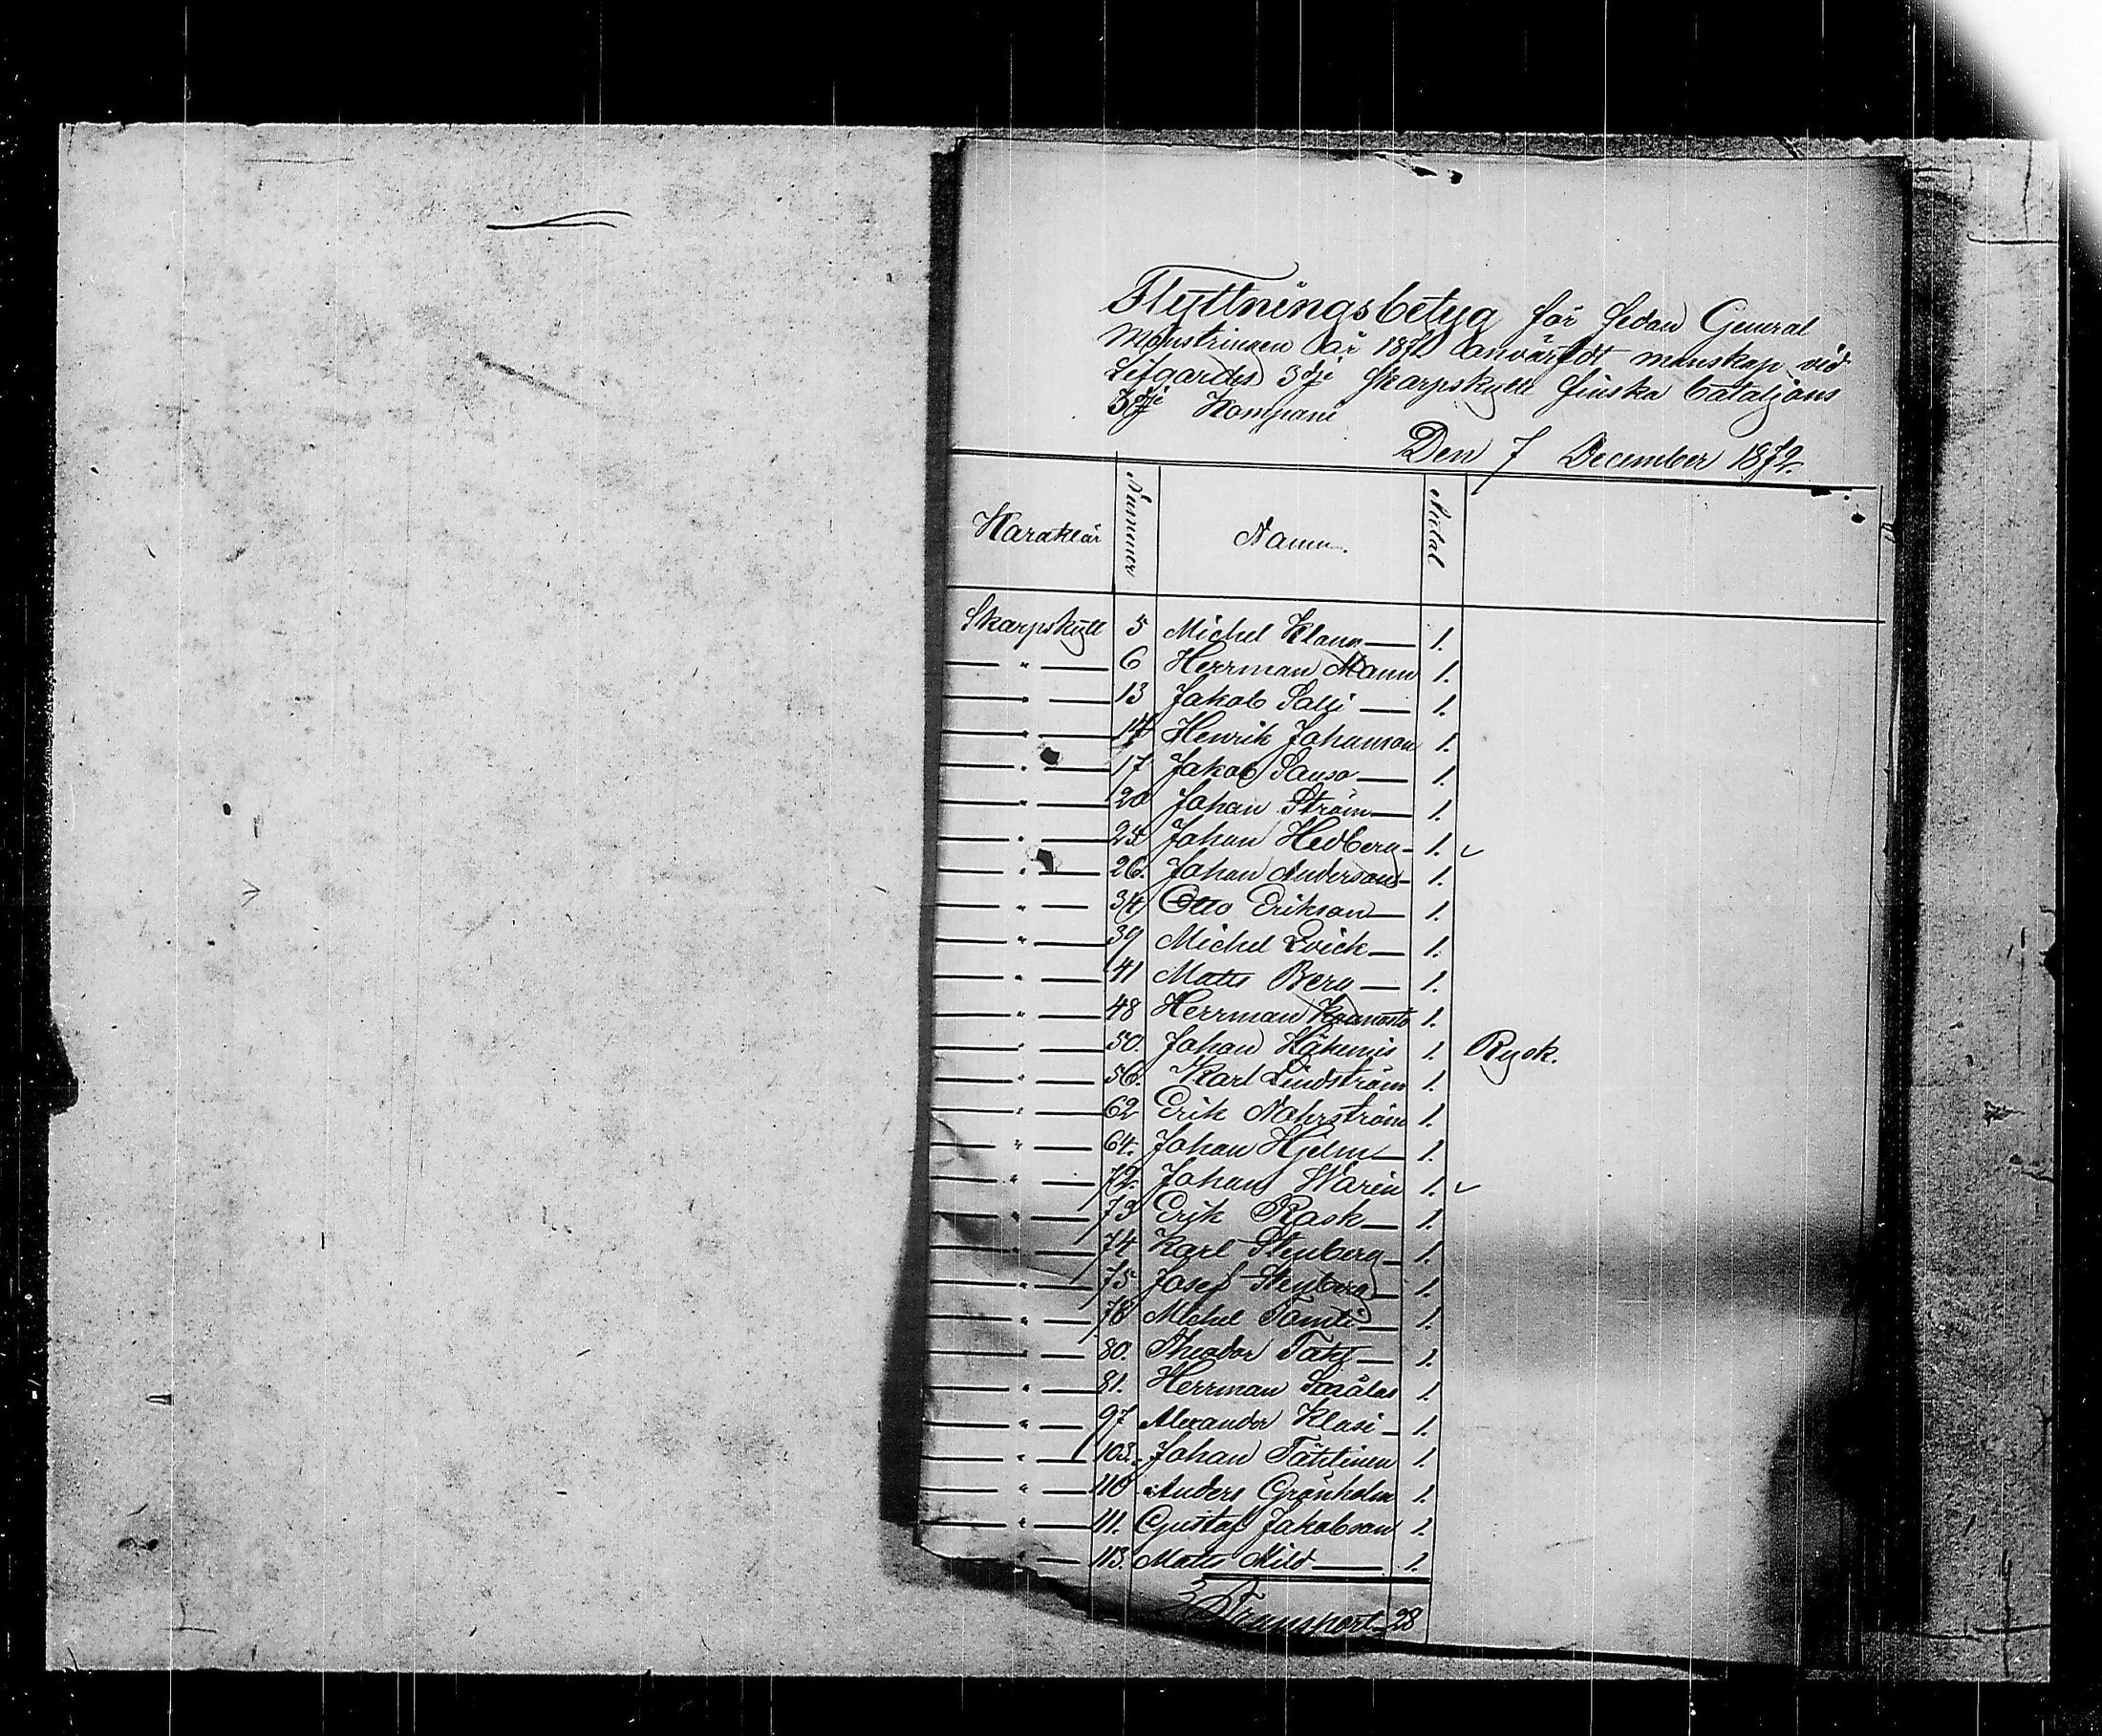 Flyttningsbetyg för sedan General
Mönstringen år 1871 anvärfdt manskap vid
Lifgardes 3dje Skarpskytte finska bataljons
3dje Kompani
Den 7 December 1872.
Karaktär Nummer Namn. Antal
Skarpskytt 5 Michel Klann — 1.
— " — 6 Herrman Mann 1.
— " — 13 Jakob Salji — 1.
— " — 14 Henrik Johanson 1.
— " — 17 Jakob Sauso — 1.
— " — 20 Johan Ström — 1.
— " — 24 Johan Hedberg — 1. ✓
— " — 26. Johan Anderson — 1.
— " — 34 Otto Erikson — 1.
— " — 39 Michel Qvick — 1.
— " — 41 Matts Berg — 1.
— " — 48 Herrman 1.
— " — 50. Johan 1. Rysk.
— " — 56. Karl Lindström 1.
— " — 62 Erik Nohrström 1.
— " — 64. Johan Hjelm — 1.
— " — 72. Johan Warén 1. ✓
— " — 73 Erik Rask — 1.
— " — 74 Karl Stenberg — 1.
— " — 75 Josef Stenberg — 1.
— " — 78 Michel Tomti — 1.
— " — 80. Theodor — 1.
— " — 81. Herrman 1.
— " — 97 Alexander Klasi — 1.
— " — 103. Johan Tähtinen 1.
— " — 110 Anders Grönholm 1.
— " — 111. Gustaf Jakobson 1.
— " — 113. Matts Mild — 1.
Transport 28